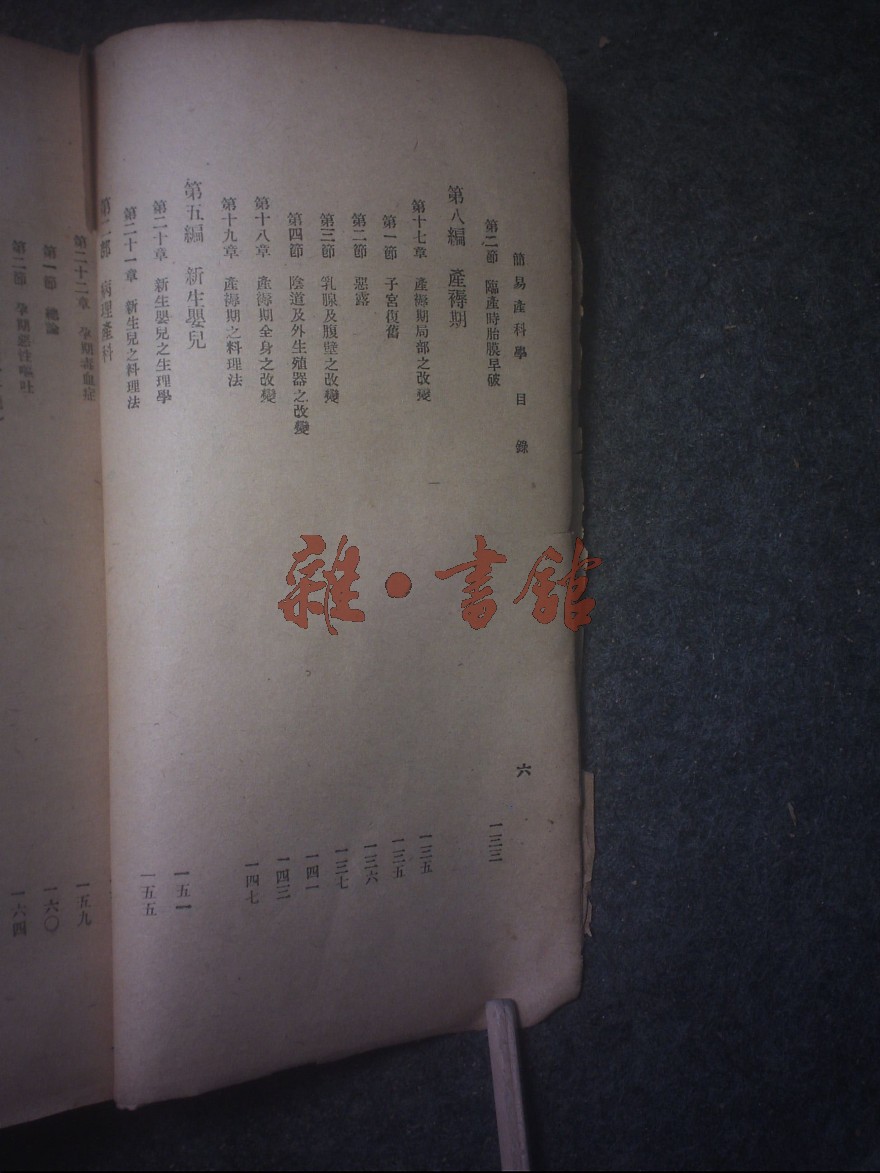 簡易產科學 目錄 六
第二節 臨產時胎膜早破 一三三
第八編 產褥期
第十七章 產褥期局部之改變 一三五
第一節 子宮復舊 一三五
第二節 惡露 一三六
第三節 乳腺及腹壁之改變 一三七
第四節 陰道及外生殖器之改變 一四一
第十八章 產褥期全身之改變 一四三
第十九章 產褥期之料理法 一四七
第五編 新生嬰兒
第二十章 新生嬰兒之生理學 一五一
第二十一章 新生兒之料理法 一五五
第二部 病理產科
第二十二章 孕期毒血症 一五九
第一節 總論 一六〇
第二節 孕期惡性嘔吐 一六四
雜·書館